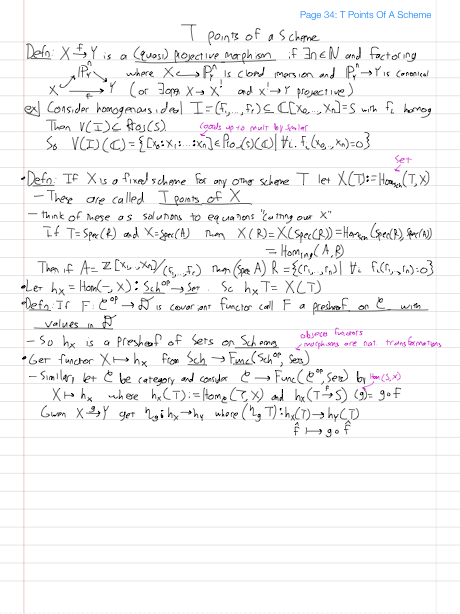 Page 34: T Points Of A Scheme
T points of a Scheme
Defn: X →f Y is a (quasi) projective morphism if ∃n∈ℕ and factoring
ℙ_Y^n where X ↪ ℙ_Y^n is closed imersion and ℙ_Y^n → Y is canonical
X →f Y (or ∃open X → X' and X' → Y projective)
ex) Consider homogenous ideal I = (f_1,...,f_r) ⊆ ℂ[x_0,..,x_n] = S with f_i homog
Then V(I) ⊆ Proj(S)
coords up to mult by scalar
So V(I)(ℂ) = {[x_0:x_1:...:x_n] ∈ Proj(S)(ℂ) | ∀i. f_i(x_0,..,x_n)=0}
Set
• Defn: If X is a fixed scheme for any other scheme T let X(T) := Hom_Sch(T, X)
– These are called T points of X
– think of these as solutions to equations "cutting out X"
If T = Spec(R) and X = Spec(A) Then X(R) = X(Spec(R)) = Hom_Sch(Spec(R), Spec(A))
= Hom_ring(A, R)
Then if A = ℤ[x_1,..,x_n]/(f_1,..,f_r) Then (Spec A) R = {(r_1,..,r_n) | ∀i f_i(r_1,..,r_n)=0}
• Let h_X = Hom(–, X): Sch^op → Set. So h_X T = X(T)
• Defn: If F: C^op → D is covariant functor call F a presheaf on C with
values in D
– So h_X is a Presheaf of Sets on Schemes
objects functors
morphisms are nat transformations
• Get functor X ↦ h_X from Sch → Func(Sch^op, Sets)
– Similarly let C be category and consider C → Func(C^op, Sets) by
Hom(S, X)
X ↦ h_X where h_X(T) := Hom_C(T, X) and h_X(T →f S)(g) = g∘f
Given X →g Y get η_g: h_X → h_Y where (η_g T): h_X(T) → h_Y(T)
f̂ ↦ g∘f̂